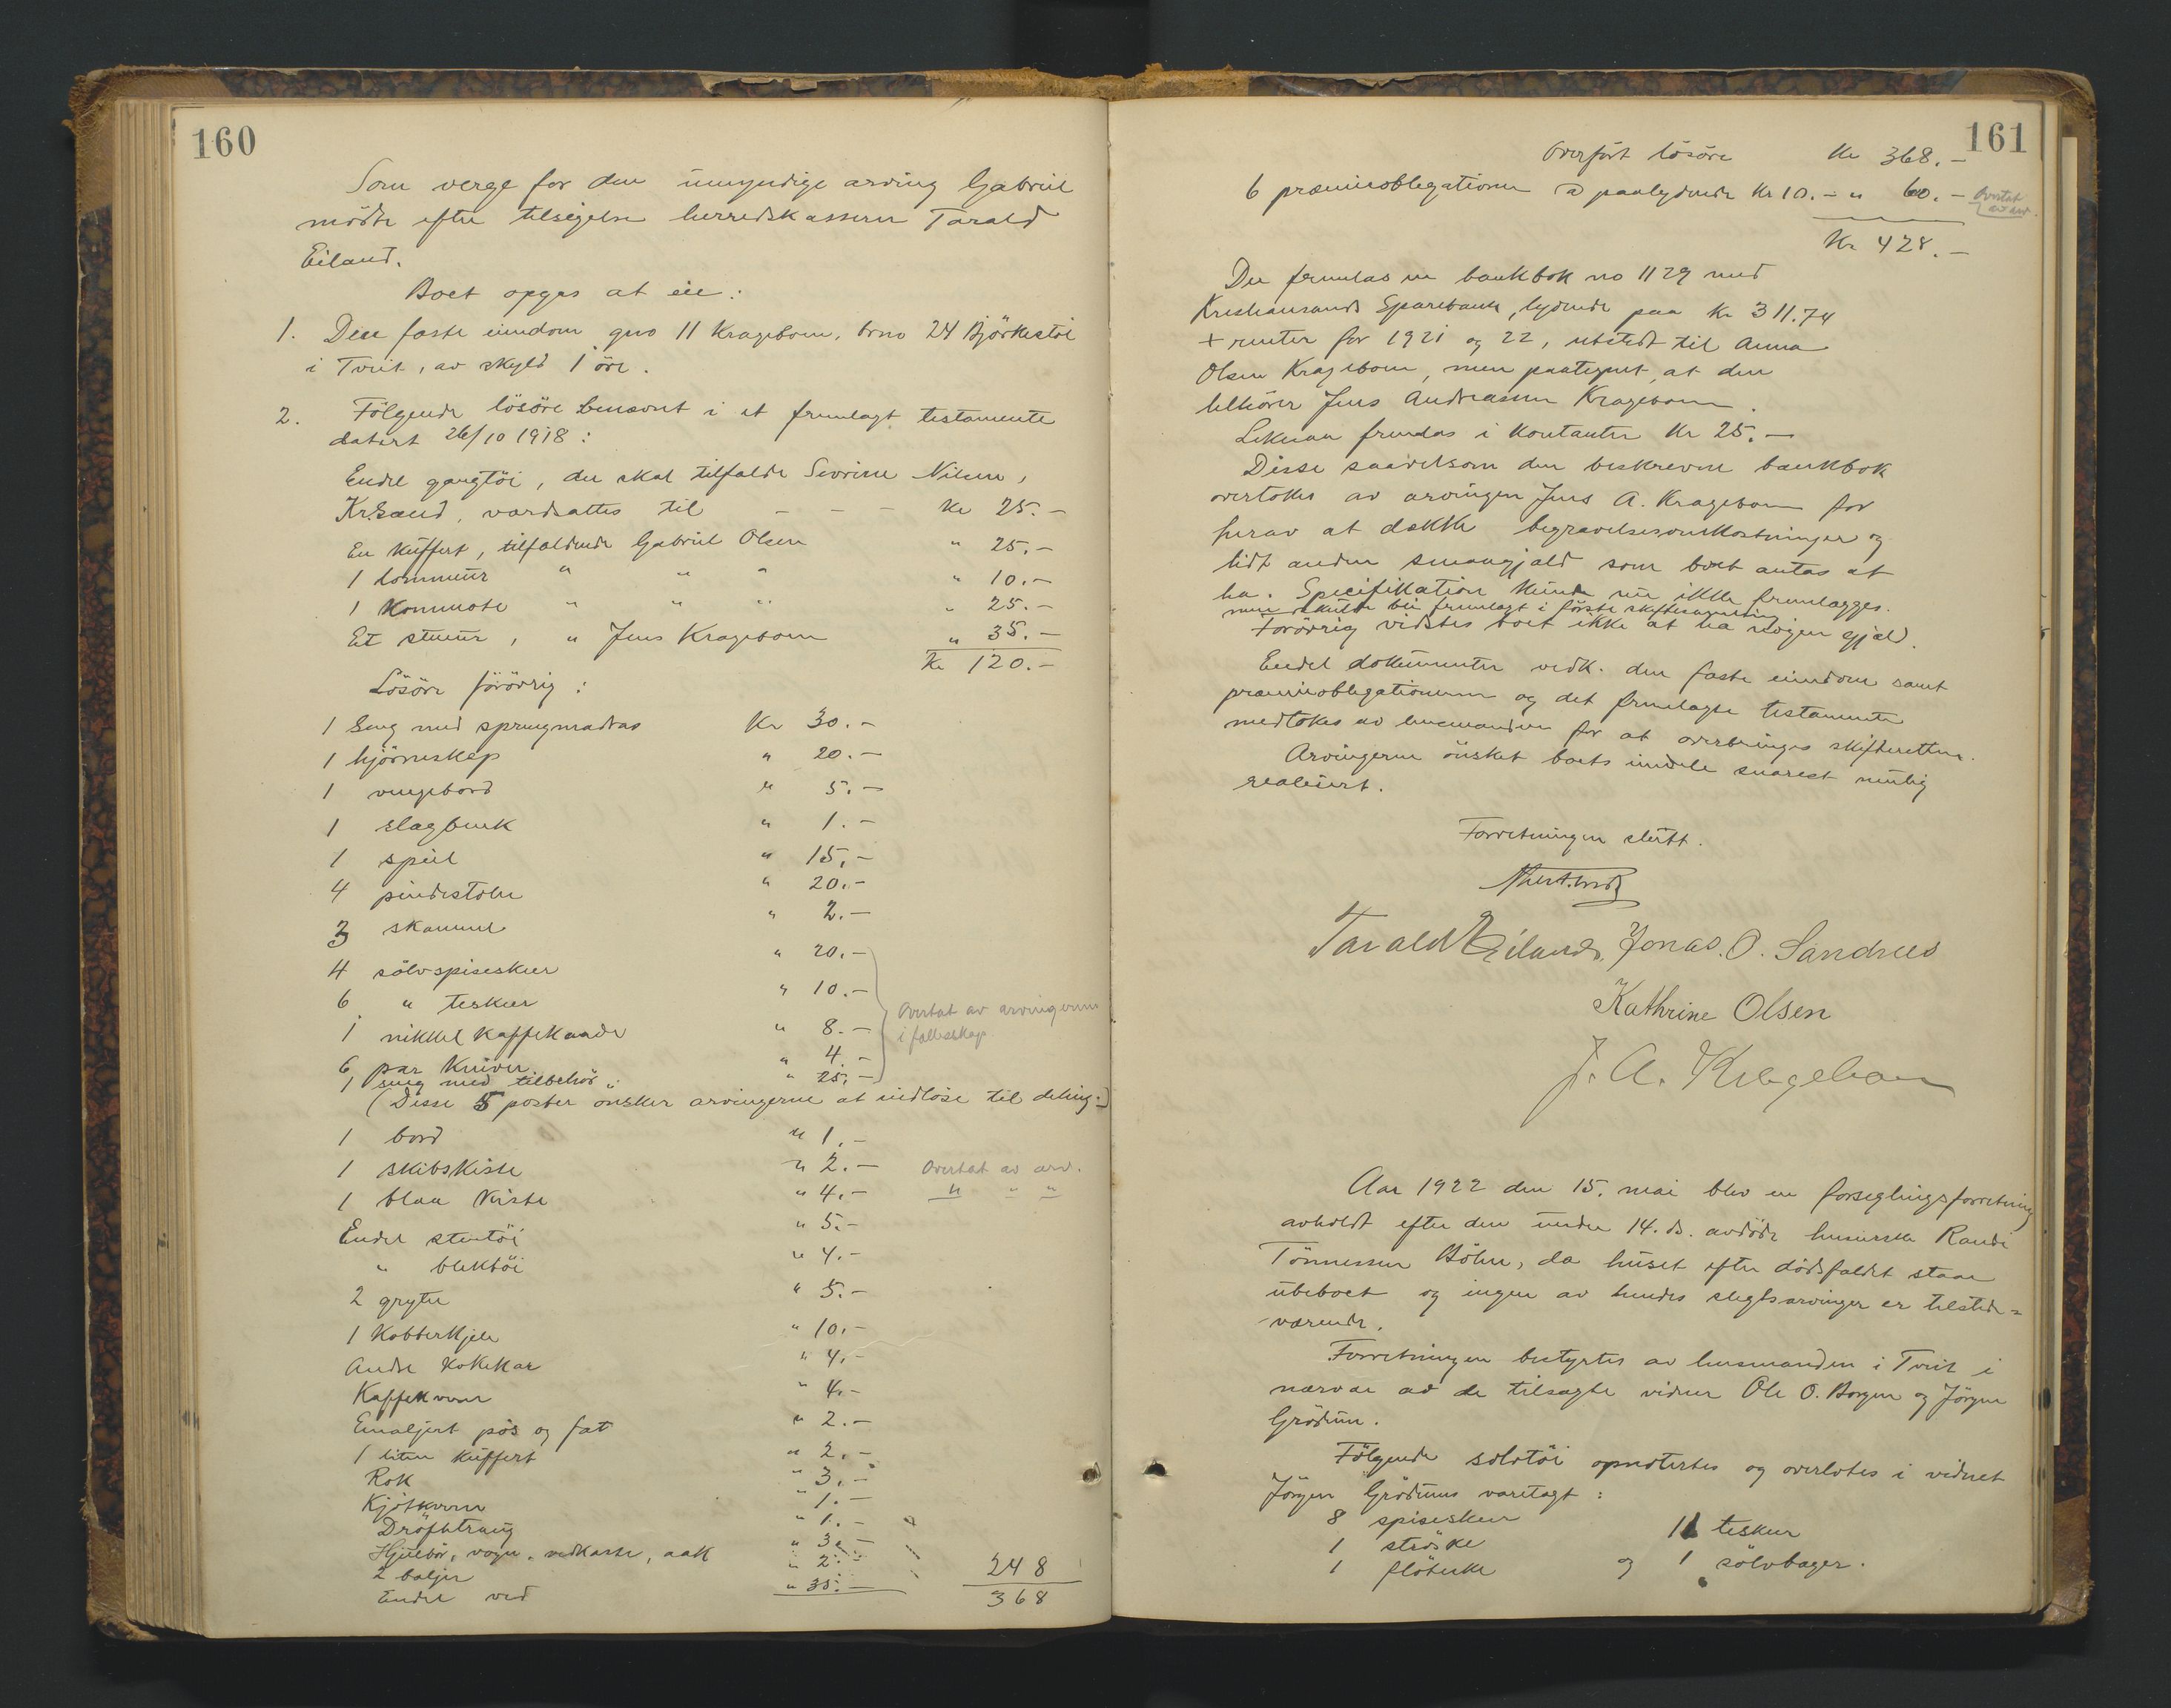 160
Som verge for den umyndige arving Gabriel
mödte efter tilsigelse herredskasserer Tarald
Eiland.
Boet opgas at eie:
1. Den faste eiendom gno 11 Kragebom, brno 24 Björkestöl
i Tveit, av skyld 1 öre.
2. Fölgende lösöre benævnt i et fremlagt testamente
datert 26/10 1918:
Endel gangtöi, der skal tilfalde Severine Nilsen,
Kr.Sand, værdsattes til - - - Kr 25.-
En Kuffert, tilfaldende Gabriel Olsen " 25.-
1 lommeur " " " " 10.-
1 Kommode " " " " 25.-
Et stueur, " Jens Kragebom " 35.-
Kr 120.-
Lösöre forövrig:
1 Seng med springmadras Kr 30.-
1 hjörneskap " 20.-
1 vengebord " 5.-
1 slagbenk " 1.-
1 speil " 15.-
4 pindestoler " 20.-
3 skammel " 2.-
4 sölvspiseskeer " 20.-
6 " teskeer " 10.-
1 nikkel Kaffekande " 8.-
6 par Kniver " 4.-
1 seng med tilbehör " 25.-
Overtat av arvingerne
i fælleskap
(Disse 5 poster önsker arvingerne at indlöse til deling.)
1 bord " 1.-
1 skibskiste " 2.- Overtat av arv.
1 blaa Kiste " 4.- " " "
Endel stentöi " 5.-
" blektöi " 4.-
2 gryter " 5.-
1 Kobberkjele " 10.-
Andre Kokekar " 4.-
Kaffekvern " 4.-
Emaljert pös og fat " 2.-
1 liten Kuffert " 2.-
Rok " 3.-
Kjötkvern " 1.-
Dröftetraug " 1.-
Hjulbör, vogn, vedkasse, aak " 3.-
2 baljer " 2.-
Endel ved " 35.- 248
368
161
Overfört lösöre Kr 368.-
6 præmieobligationer a paalydende Kr 10.- " 60.- Overtat
av arv.
Kr 428.-
Der fremlaes en bankbok no 1129 med
Kristiansands Sparebank, lydende paa Kr 311.74
+ renter for 1921 og 22, utstedt til Anna
Olsen Kragebom, men paategnet, at den
tilhörer Jens Andreassen Kragebom.
Likesaa fremlaes i Kontanter Kr 25.-
Disse saavelsom den beskrevne bankbok
overtokes av arvingen Jens A. Kragebom for
herav at dække begravelsesomkostninger og
lidt anden smaagjæld som boet antas at
ha. Specifikation Kunde nu ikke fremlægges.
men skulde bli fremlagt i förste skiftesamling
Forövrig vidstes boet ikke at ha nogen gjæld.
Endel dokumenter vedk. den faste eiendom samt
præmieobligationerne og det fremlagte testamente
medtokes av lensmanden for at overbringes skifteretten.
Arvingerne önsket boets eiendele snarest mulig
realisert.
Forretningen slutt.
Tarald Eiland. Jonas. O. Sandnes
Kathrine Olsen
J. A. Kragebom
Aar 1922 den 15. mai blev en forseglingsforretning
avholdt efter den under 14. ds. avdöde huseierske Randi
Tönnessen Böhn, da huset efter dödsfaldet staar
ubeboet og ingen av hendes slegtsarvinger er tilstede=
værende.
Forretningen bestyrtes av lensmanden i Tveit i
nærvær av de tilsagte vidner Ole O. Borgen og Jörgen
Grödum.
Fölgende sölvtöi opnotertes og overlotes i vidnet
Jörgen Grödums varetægt:
8 spiseskeer 11 teskeer
1 ströske
1 flöteske og 1 sölvbæger.